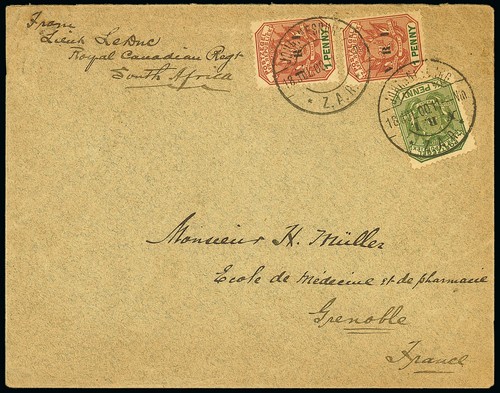 From
Lieut LeDuc
Royal Canadian Regt
South Africa
V.R.I.
1 PENNY
V.R.I.
1 PENNY
PENNY
Z.A.R.
Monsieur H. Müller
Ecole de Médecine et de pharmacie
Grenoble
France